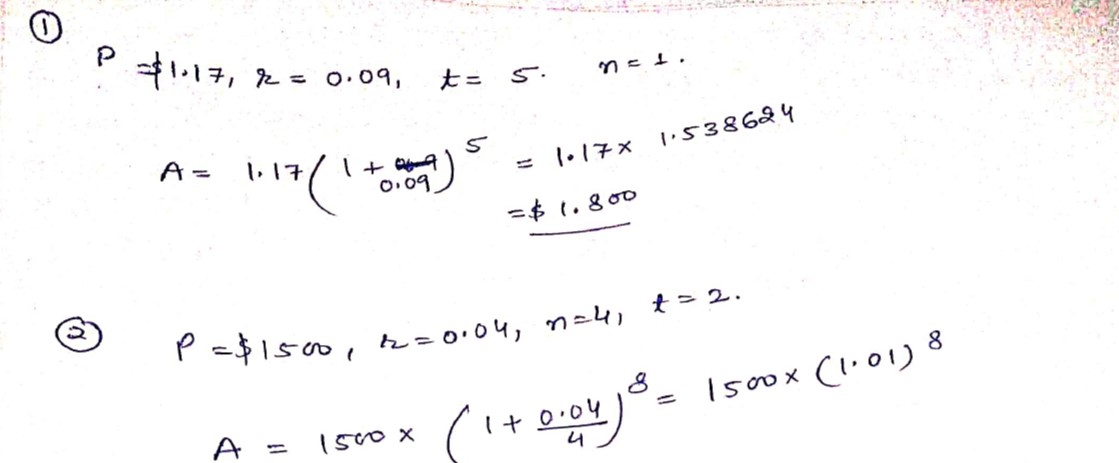 ①
P = $1.17, r = 0.09, t = 5. n = 1.
A = 1.17 ( 1 + 0.09 )^5 = 1.17 x 1.538624
= $ 1.800
②
P = $1500, r = 0.04, n = 4, t = 2.
A = 1500 x ( 1 + 0.04/4 )^8 = 1500 x (1.01)^8